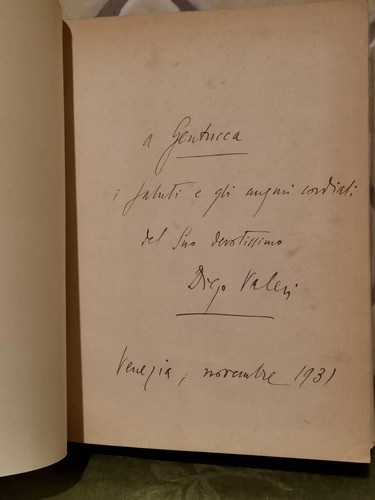 a Gentucca
i saluti e gli auguri cordiali
del Suo devotissimo
Diego Valeri
Venezia, novembre 1931